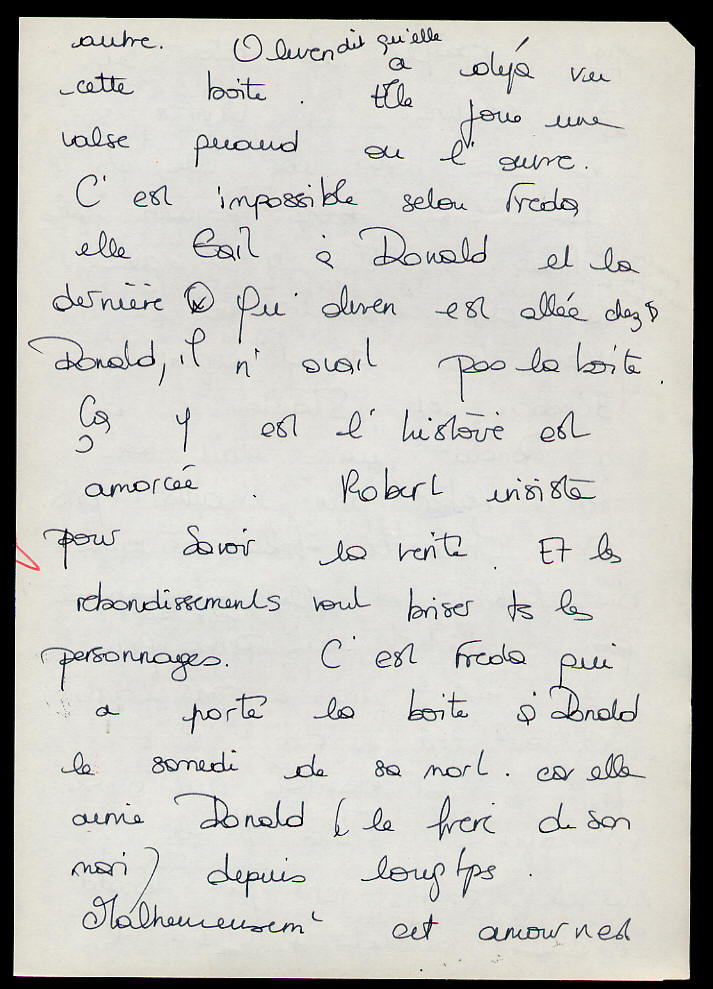 autre. Olwen dit qu'elle
a déjà vu
cette boite. Elle joue une
valse quand on l'ouvre.
C'est impossible selon Freda,
elle était à Donald et la
dernière fois qu'Olwen est allée chez
Donald, il n'avait pas la boite.
Ça y est l'histoire est
amorcée. Robert insiste
pour savoir la verité. Et les
rebondissements vont briser ts les
personnages. C'est Freda qui
a porté la boite à Donald
le samedi de sa mort. car elle
aime Donald (le frère de son
mari) depuis longtps.
Malheureusemt cet amour n'est